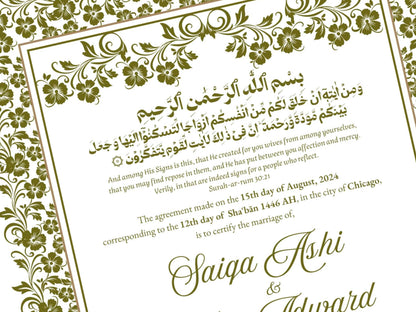 بِسْمِ ٱللَّٰهِ ٱلرَّحْمَٰنِ ٱلرَّحِيمِ
وَمِنْ آيَاتِهِ أَنْ خَلَقَ لَكُم مِّنْ أَنفُسِكُمْ أَزْوَاجًا لِّتَسْكُنُوا إِلَيْهَا وَجَعَلَ
بَيْنَكُم مَّوَدَّةً وَرَحْمَةً إِنَّ فِي ذَٰلِكَ لَآيَاتٍ لِّقَوْمٍ يَتَفَكَّرُونَ
And among His Signs is this, that He created for you wives from among yourselves,
that you may find repose in them, and He has put between you affection and mercy.
Verily, in that are indeed signs for a people who reflect.
Surah-ar-rum 30:21
The agreement made on the 15th day of August, 2024
corresponding to the 12th day of Sha'bān 1446 AH, in the city of Chicago,
is to certify the marriage of,
Saiqa Ashi
&
Adward